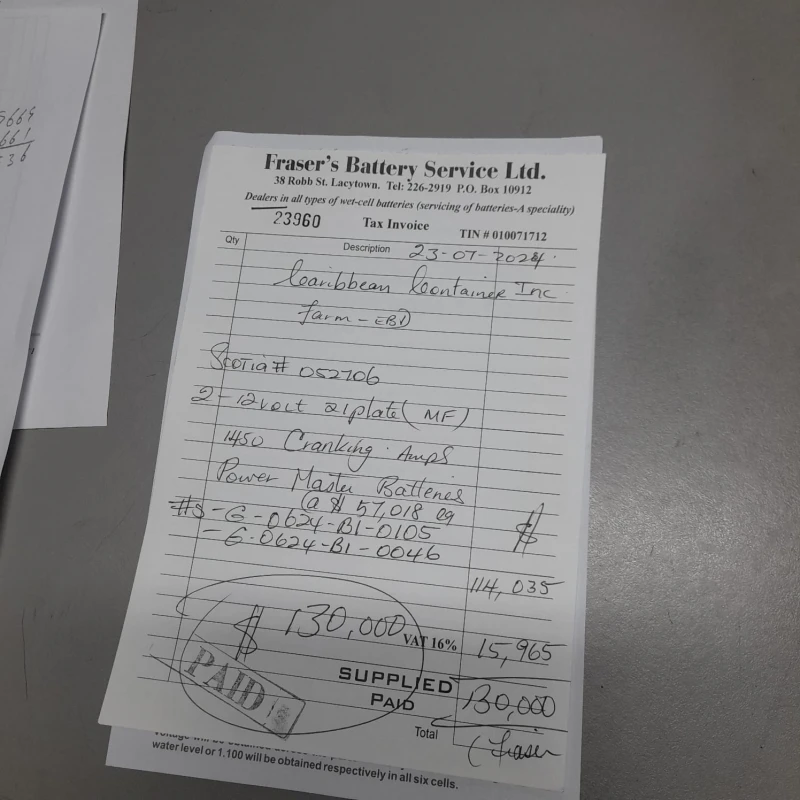 5664
661
36
Fraser's Battery Service Ltd.
38 Robb St. Lacytown. Tel: 226-2919 P.O. Box 10912
Dealers in all types of wet-cell batteries (servicing of batteries-A speciality)
23960 Tax Invoice TIN # 010071712
Qty Description 23-07-2024
Caribbean Container Inc
Farm - EBD
Scotia # 052706
2 - 12 volt 21 plate ( MF )
1450 Cranking Amps
Power Master Batteries
@ $ 57,018 eg
#s - G - 0624 - B1 - 0105 $
- G - 0624 - B1 - 0046
114,035
$ 130,000 VAT 16% 15,965
PAID SUPPLIED
PAID 130,000
Total Fraser
water level or 1.100 will be obtained respectively in all six cells.